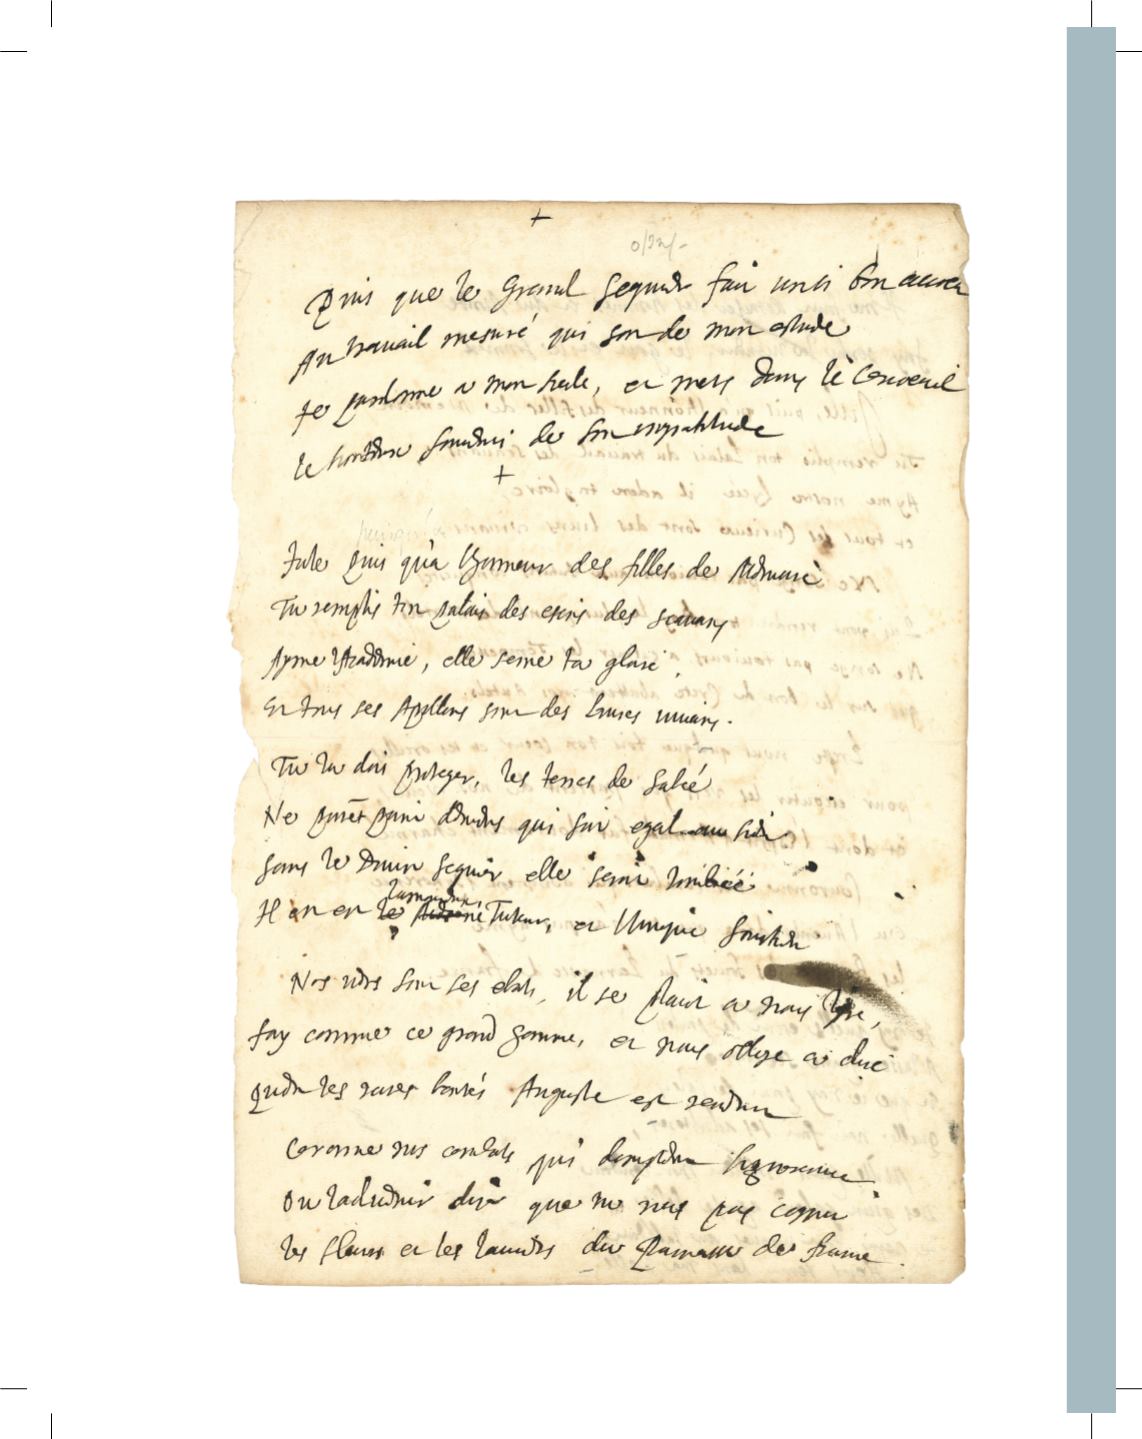 +
Puis que le Grand Sequier fait un si bon acueu
Au travail mesuré qui sort de mon estude
Je pardonne a mon siecle, et mets dans le Cercueil
le honteux souvenir de son ingratitude
+
Jule puis qu'a l'honneur des filles de Memoire
Tu remplis ton palais des escris des scavans
Ayme l'Academie, elle seme ta gloire
Et tous ses Apollons sont des livres vivans.
Tu la dois proteger, les terres de
Ne point d' qui soit egal au sien
sans le Divin Sequier elle seroit
Il en est le Tuteur, et l'Unique soustien
Nos vers sont ses esbats, il se plaist a nous lire,
fay comme ce grand homme, et nous oblige a dire
Qu'en tes rares bontés Auguste est
Coronne nos combats qui domptent l'ignorance
Ou l'advenir dira que tu n'as pas cognu
les fleurs et les lauriers du Parnasse de france.